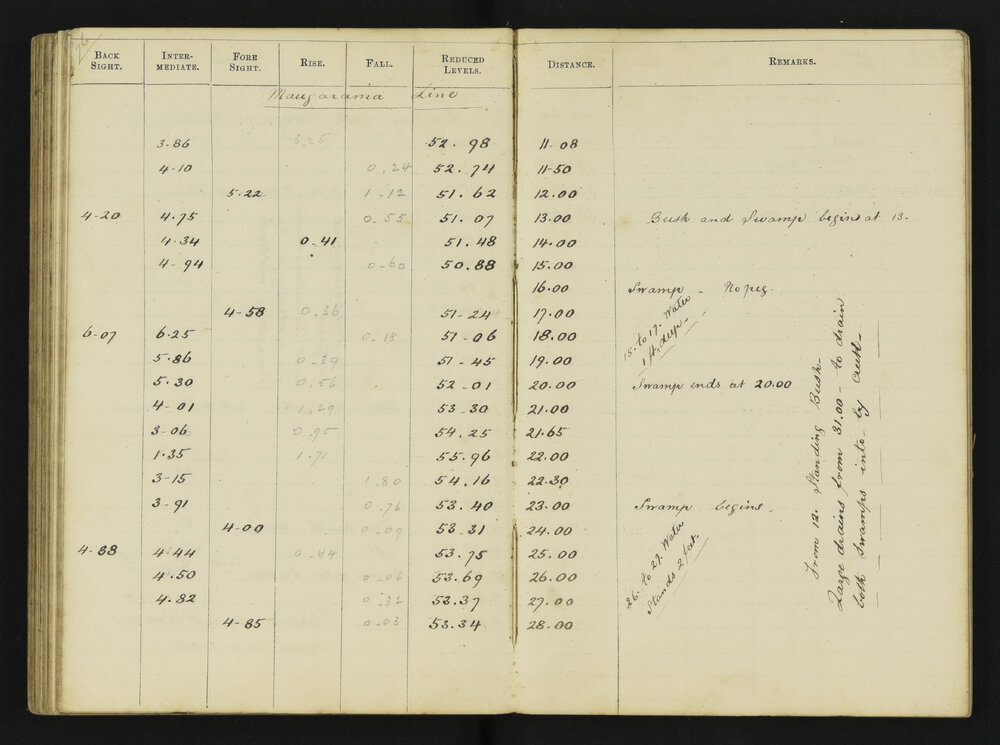 76
BACK SIGHT. INTER-MEDIATE. FORE SIGHT. RISE. FALL. REDUCED LEVELS. DISTANCE. REMARKS.
Line
3-86 3.25 52.98 11-08
4-10 0.24 52.74 11-50
5-22 1-12 51.62 12.00
4-20 4.75 0-55 51.07 13.00 Bush and Swamp begins at 13-
4-34 0-41 51.48 14.00
4-94 0-60 50.88 15.00
16.00 Swamp - No peg-
4-58 0.36 51-24 17.00
6-07 6.25 0-18 51-06 18.00
5.86 0-39 51-45 19.00
5.30 0.56 52-01 20.00 Swamp ends at 20.00
4-01 1.29 53-30 21.00
3-06 0-95 54.25 21.65
1.35 1-71 55.96 22.00
3-15 1.80 54.16 22.30
3-91 0.76 53.40 23.00 Swamp begins-
4-00 0-09 53.31 24.00
4-88 4-44 0-44 53.75 25.00
4.50 0.06 53.69 26.00
4.82 0.32 53.37 27.00
4-85 0.03 53.34 28.00
15- to 17. Water
1 ft. deep-
26. to 27. Water
Stands 2 feet.
From 12. Standing Bush-
Large drains from 31.00- to drain
both Swamps into- by